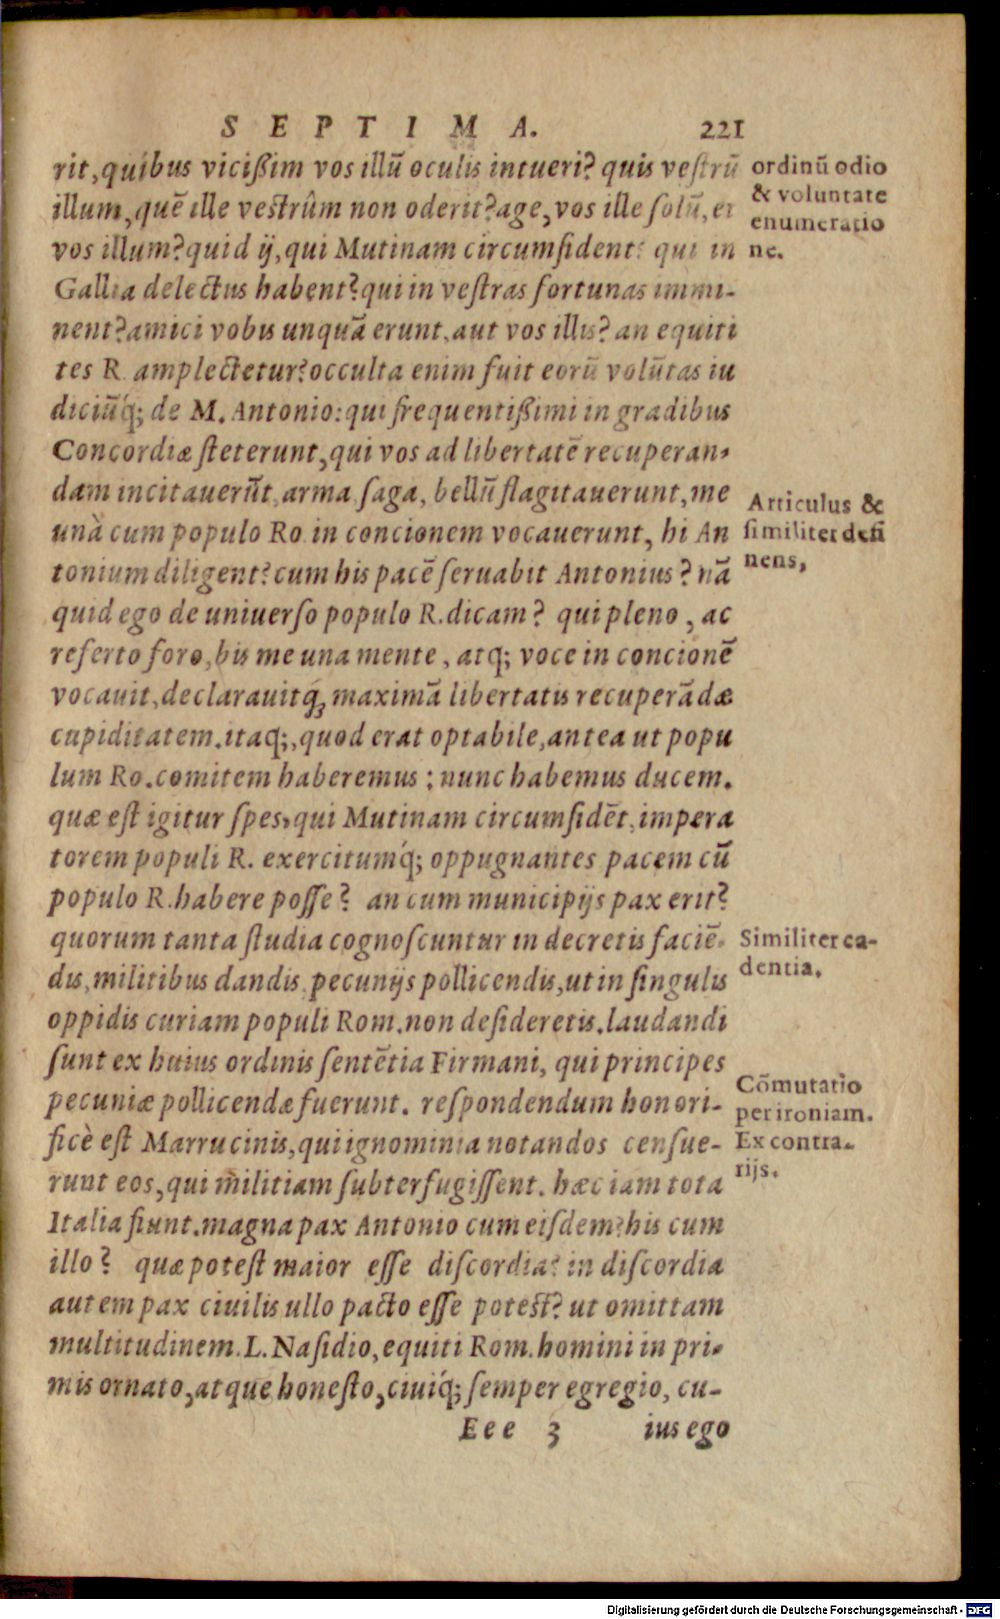 SEPTIMA. 221
rit, quibus vicißim vos illũ oculis intueri? quis vestrũ
illum, quẽ ille vestrûm non oderit? age, vos ille solũ, et
vos illum? quid ij, qui Mutinam circumsident? qui in
Gallia delectus habent? qui in vestras fortunas immi-
nent? amici vobis unquã erunt, aut vos illis? an equiti
tes R. amplectetur? occulta enim fuit eorũ volũtas iu
diciũq́; de M. Antonio: qui frequentißimi in gradibus
Concordiæ steterunt, qui vos ad libertatẽ recuperan-
dam incitauerũt, arma, saga, bellũ flagitauerunt, me
unà cum populo Ro. in concionem vocauerunt, hi An
tonium diligent? cum his pacẽ seruabit Antonius? nã
quid ego de uniuerso populo R. dicam? qui pleno, ac
referto foro, bis me una mente, atq; voce in concionẽ
vocauit, declarauitq́; maximã libertatis recuperãdæ
cupiditatem. itaq;, quod erat optabile, antea ut popu
lum Ro. comitem haberemus: nunc habemus ducem.
quæ est igitur spes, qui Mutinam circumsidẽt, impera
torem populi R. exercitumq́; oppugnantes pacem cũ
populo R. habere posse? an cum municipijs pax erit?
quorum tanta studia cognoscuntur in decretis faciẽ-
dis, militibus dandis, pecunijs pollicendis, ut in singulis
oppidis curiam populi Rom. non desideretis. laudandi
sunt ex huius ordinis sentẽtia Firmani, qui principes
pecuniæ pollicendæ fuerunt. respondendum honori-
ficè est Marrucinis, qui ignominia notandos censue-
runt eos, qui militiam subterfugissent. hæc iam tota
Italia fiunt. magna pax Antonio cum eisdem? his cum
illo? quæ potest maior esse discordia? in discordia
autem pax ciuilis ullo pacto esse potest? ut omittam
multitudinem. L. Nasidio, equiti Rom. homini in pri-
mis ornato, atque honesto, ciuiq́; semper egregio, cu-
Eee 3 ius ego
ordinũ odio
& voluntate
enumeratio
ne.
Articulus &
similiter desi
nens,
Similiter ca-
dentia.
Cõmutatio
per ironiam.
Ex contra-
rijs.
Digitalisierung gefördert durch die Deutsche Forschungsgemeinschaft - DFG